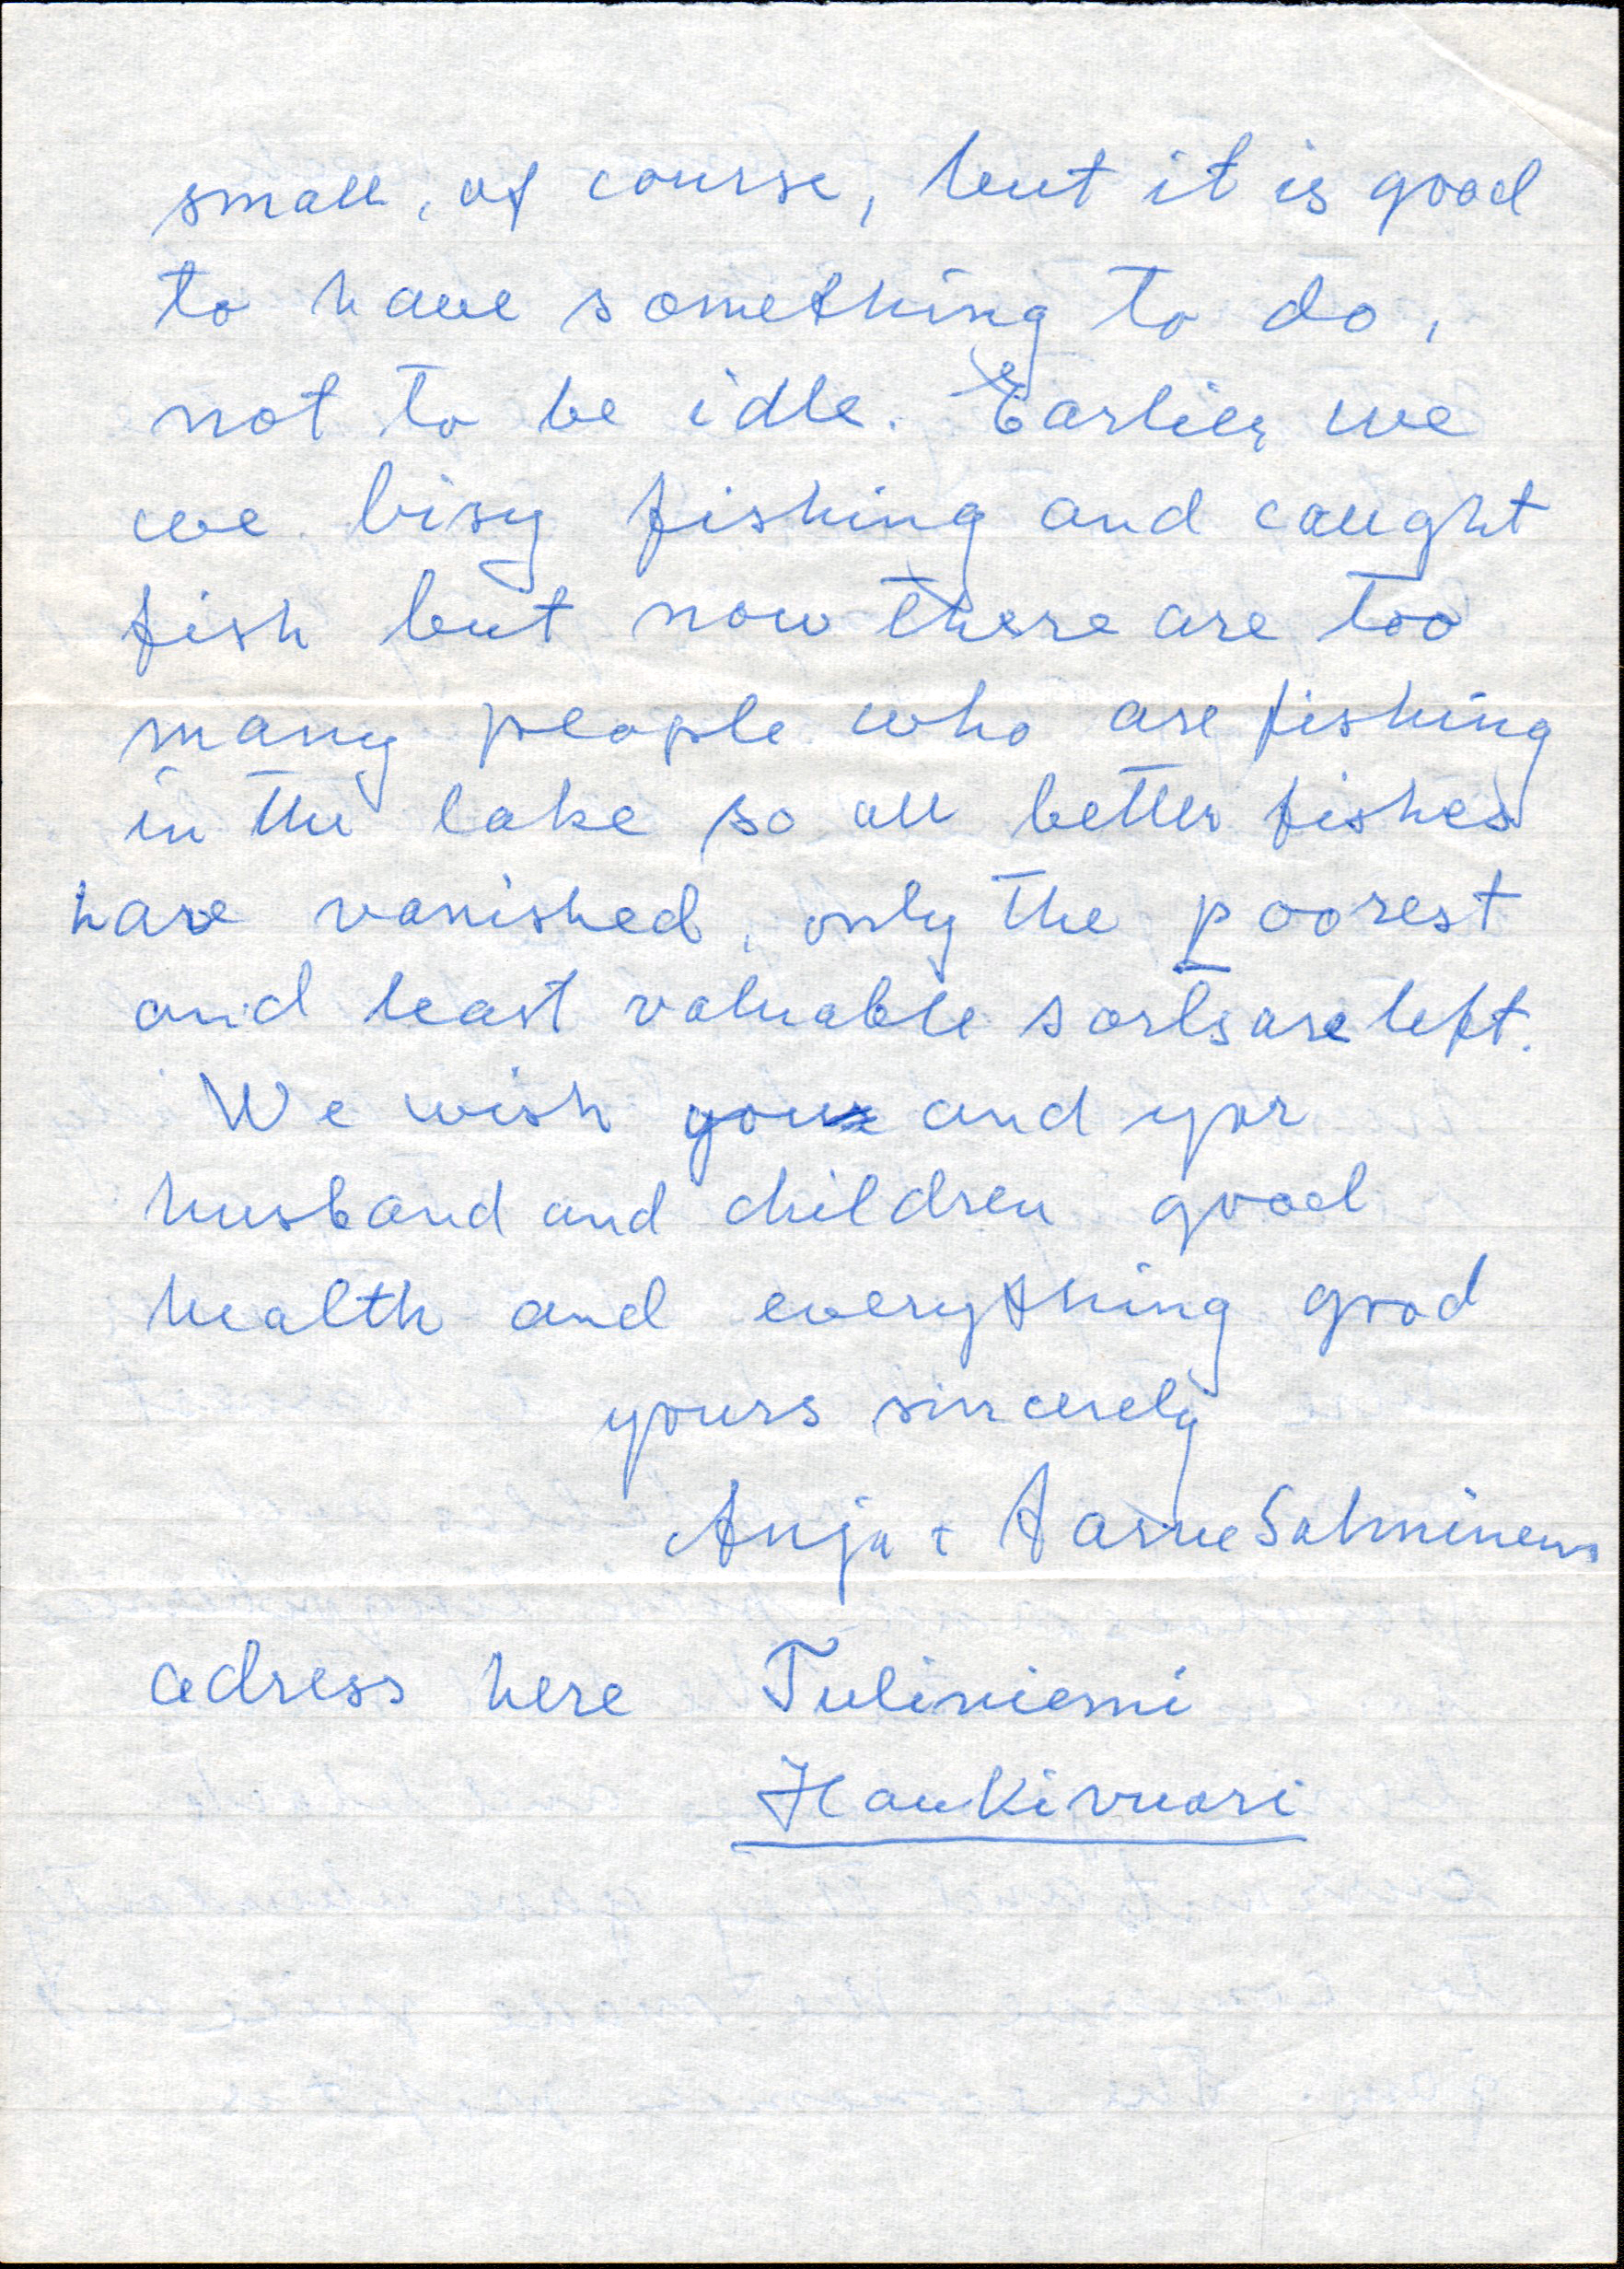 small, of course, but it is good
to have something to do,
not to be idle. Earlier we
we bisy fishing and caught
fish but now there are too
many people who are fishing
in the lake so all better fishes
have vanished, only the poorest
and least valuable sorts are left.
We wish you and yor
husband and children good
health and everything good
yours sincerely
Anja + Aarne Salminen
adress here Tuliniemi
Haukivuori